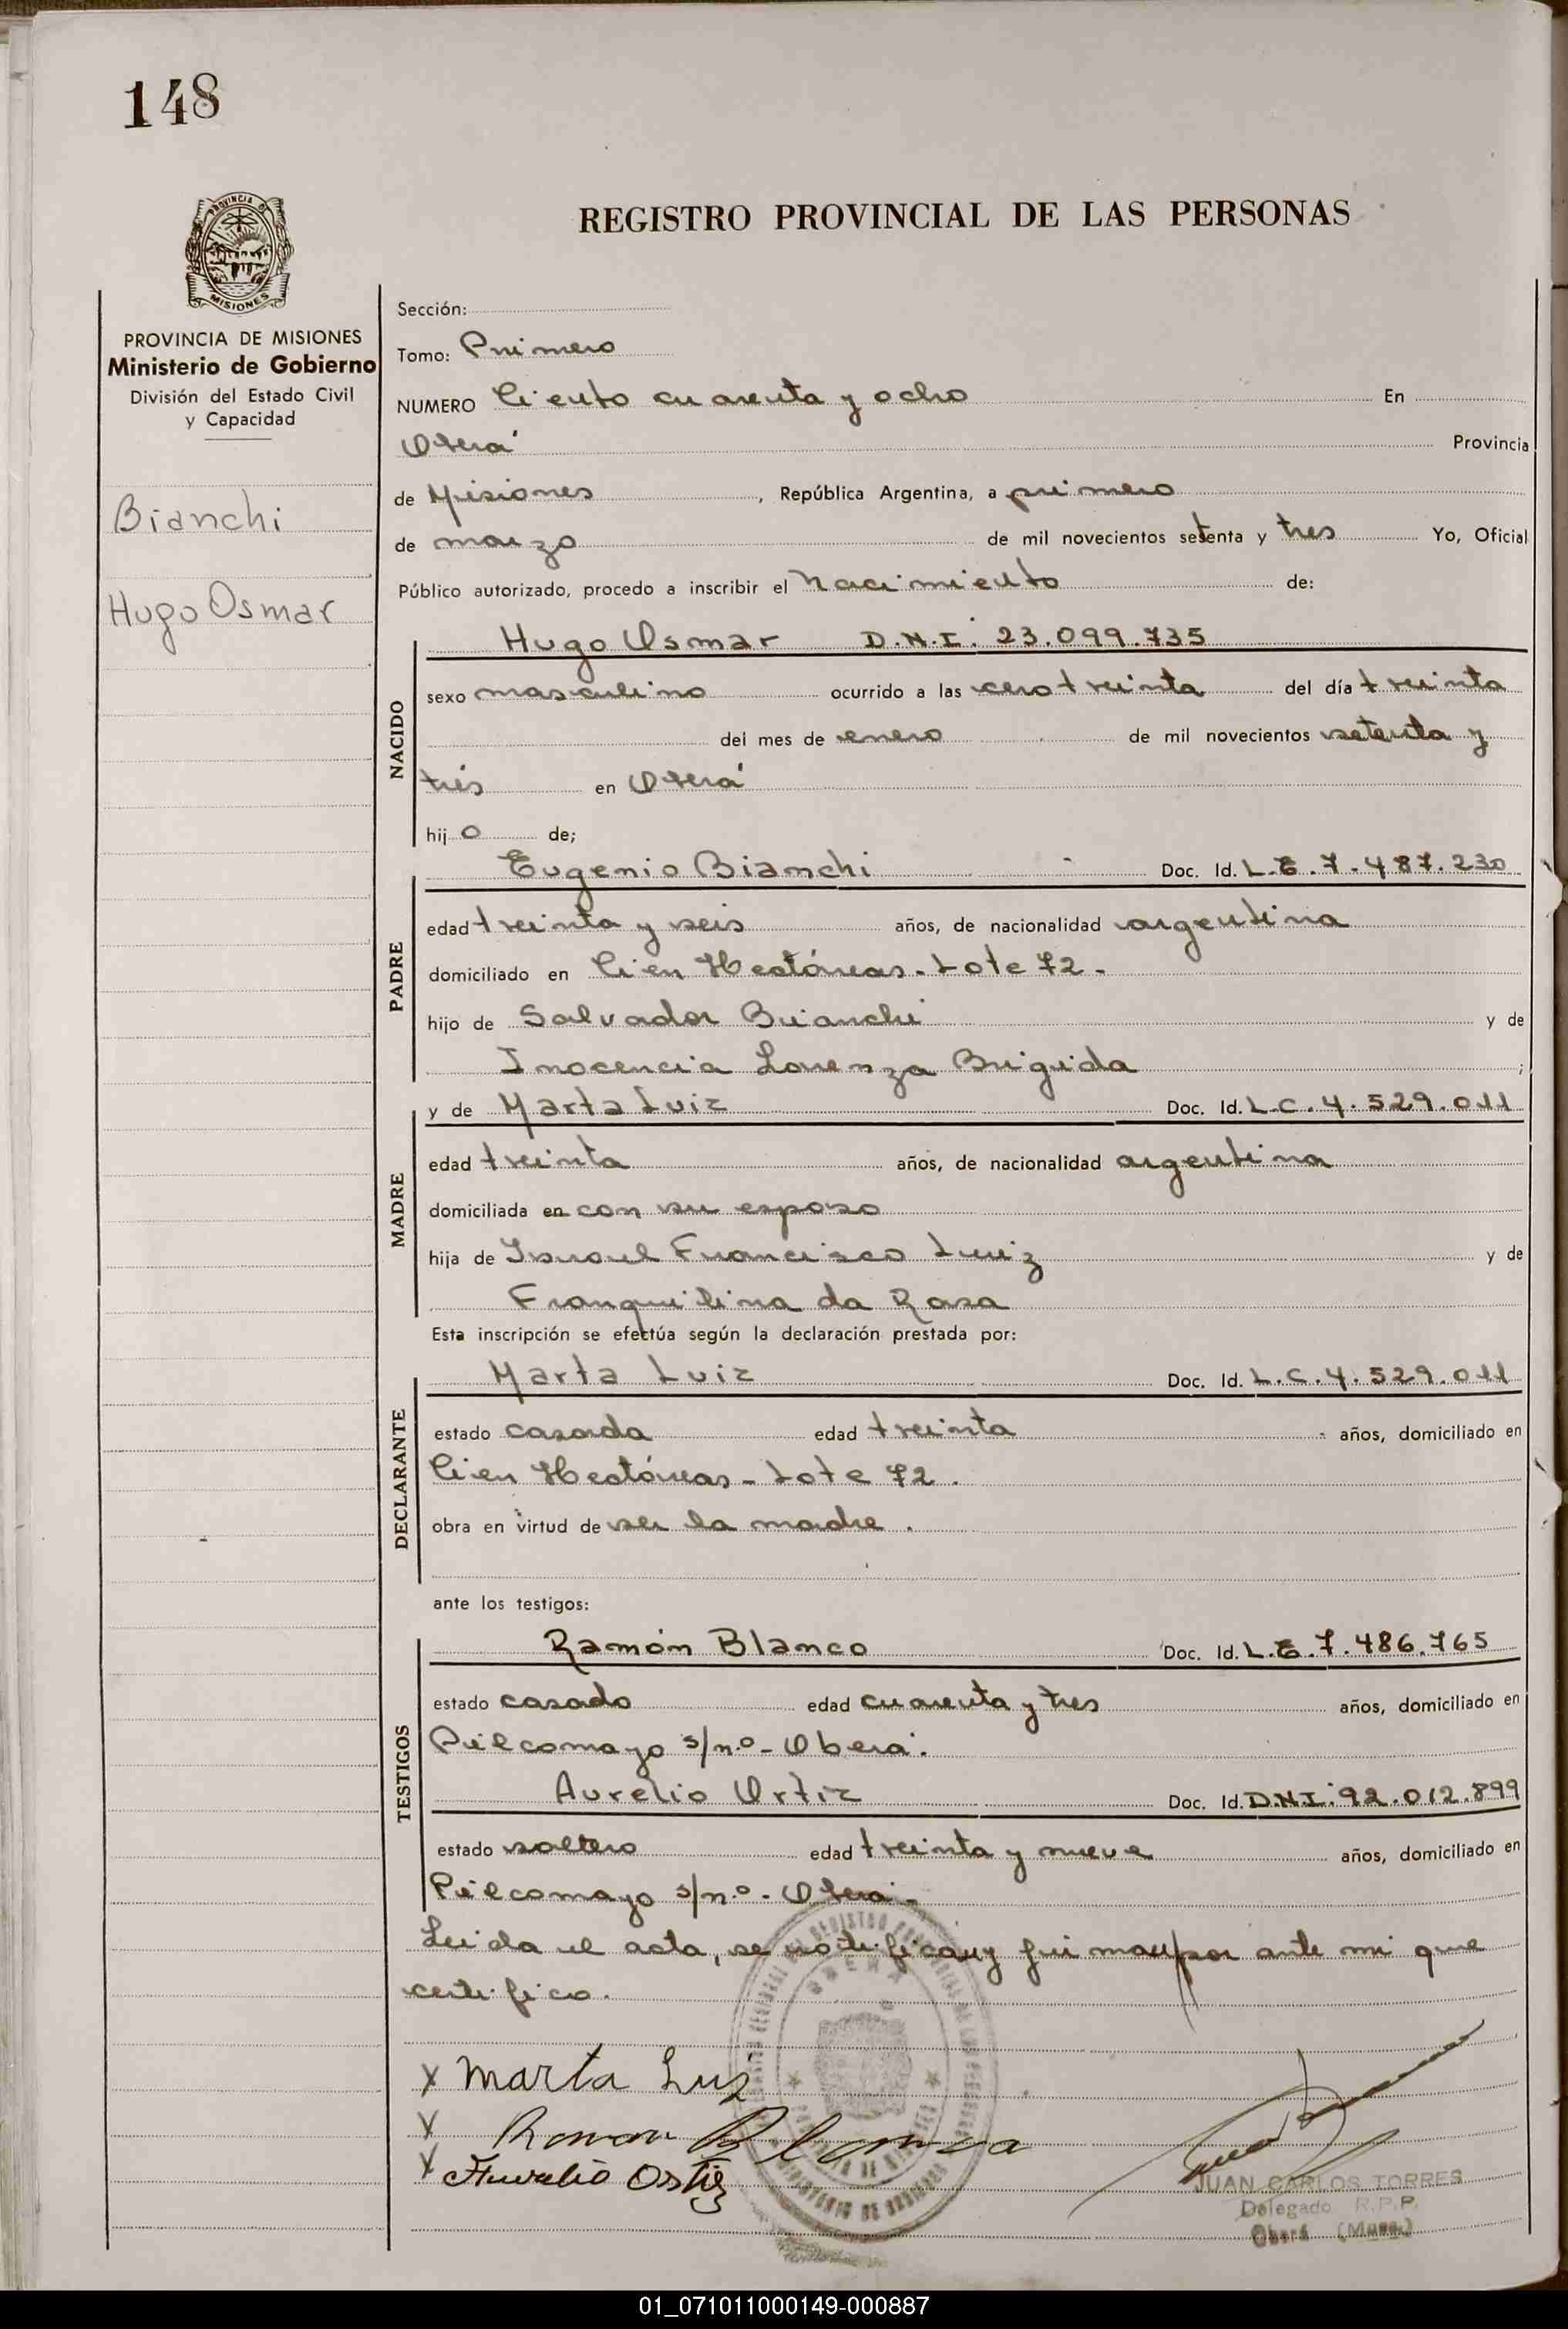 148
PROVINCIA DE
MISIONES
REGISTRO PROVINCIAL DE LAS PERSONAS
PROVINCIA DE MISIONES
Ministerio de Gobierno
División del Estado Civil
y Capacidad
Bianchi
Hugo Osmar
Sección:
Tomo: Primero
NUMERO Ciento cuarenta y ocho En
Oberá Provincia
de Misiones, República Argentina, a primero
de marzo de mil novecientos setenta y tres Yo, Oficial
Público autorizado, procedo a inscribir el Nacimiento de:
NACIDO
Hugo Osmar D.N.I. 23.099.735
sexo masculino ocurrido a las cero treinta del día treinta
del mes de enero de mil novecientos setenta y
tres en Oberá
hijo de;
PADRE
Eugenio Bianchi Doc. Id. L.E. 7.487.230
edad treinta y seis años, de nacionalidad argentina
domiciliado en Cien Hectáreas - Lote 72.
hijo de Salvador Bianchi y de
Inocencia Lorenza Brigida ;
MADRE
y de Marta Luiz Doc. Id. L.C. 4.529.011
edad treinta años, de nacionalidad argentina
domiciliada en con su esposo
hija de Ismael Francisco Luiz y de
Franquilina da Rosa
Esta inscripción se efectúa según la declaración prestada por:
DECLARANTE
Marta Luiz Doc. Id. L.C. 4.529.011
estado casada edad treinta años, domiciliado en
Cien Hectáreas - Lote 72.
obra en virtud de ser la madre.
ante los testigos:
TESTIGOS
Ramón Blanco Doc. Id. L.E. 7.486.765
estado casado edad cuarenta y tres años, domiciliado en
Pilcomayo s/n.º - Oberá.
Aurelio Ortiz Doc. Id. D.N.I. 92.012.899
estado soltero edad treinta y nueve años, domiciliado en
Pilcomayo s/n.º - Oberá.
Leida el acta, se notifican y firman por ante mi que
certifico.
x Marta Luiz
x Ramon Blanco
x Aurelio Ortiz
JUAN CARLOS TORRES
Delegado R.P.P.
Oberá (Mnes.)
01_071011000149-000887